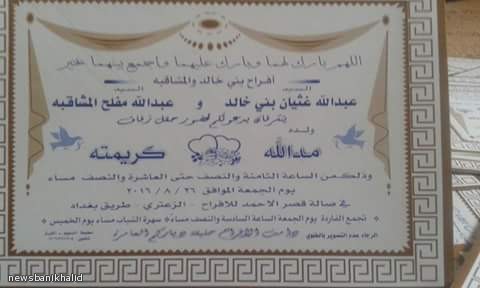 اللهم بارك لهما وبارك عليهما واجمع بينهما بخير
افراح بني خالد والمشاقبه
السيد السيد
عبدالله غثيان بني خالد و عبدالله مفلح المشاقبه
يتشرفان بدعوتكم لحضور حفل زفاف
ولده
مدالله كريمته
وذلك من الساعة الثامنة والنصف حتى العاشرة والنصف مساء
يوم الجمعة الموافق ٢٦ / ٨ / ٢٠١٦
في صالة قصر الاحمد للافراح - الزعتري - طريق بغداد
* تجمع الفاردة يوم الجمعة الساعة السادسة والنصف مساء * سهرة الشباب مساء يوم الخميس *
الرجاء عدم التصوير بالخلوي دامت الأفراح حليفة دياركم العامرة
newsbanikhalid